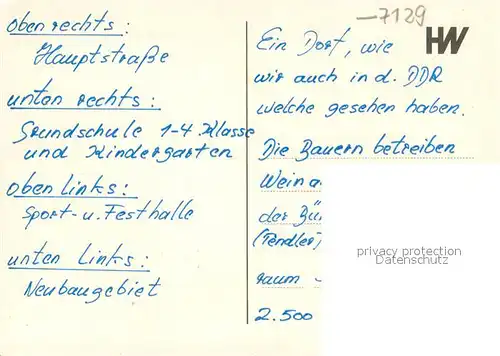 oben rechts:
Hauptstraße
unten rechts:
Grundschule 1-4. Klasse
und Kindergarten
oben links:
Sport- u. Festhalle
unten links:
Neubaugebiet
—7129
HW
Ein Dorf, wie
wir auch in d. DDR
welche gesehen haben.
Die Bauern betreiben
Weina
der Bü
(Pendler)
raum -
2.500
privacy protection
Datenschutz